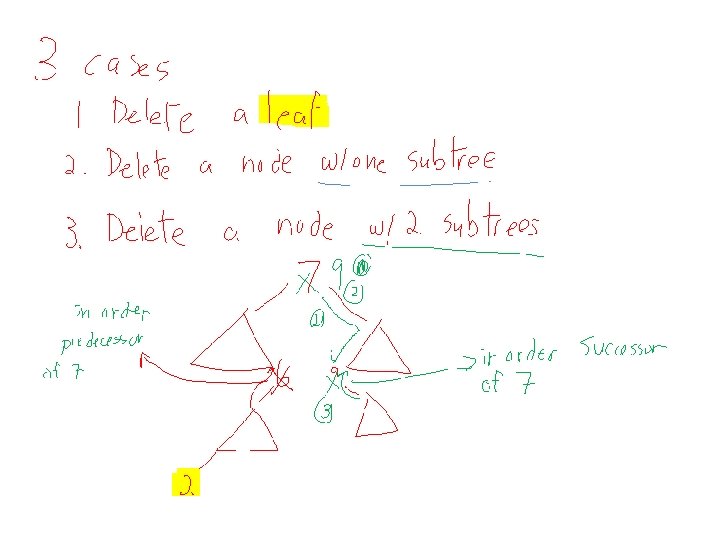 3 cases
1 Delete a leaf
2. Delete a node w/one subtree
3. Delete a node w/ 2 subtrees
7 9
2
1
in order
predecessor
of 7
6
9
in order successor
of 7
3
2